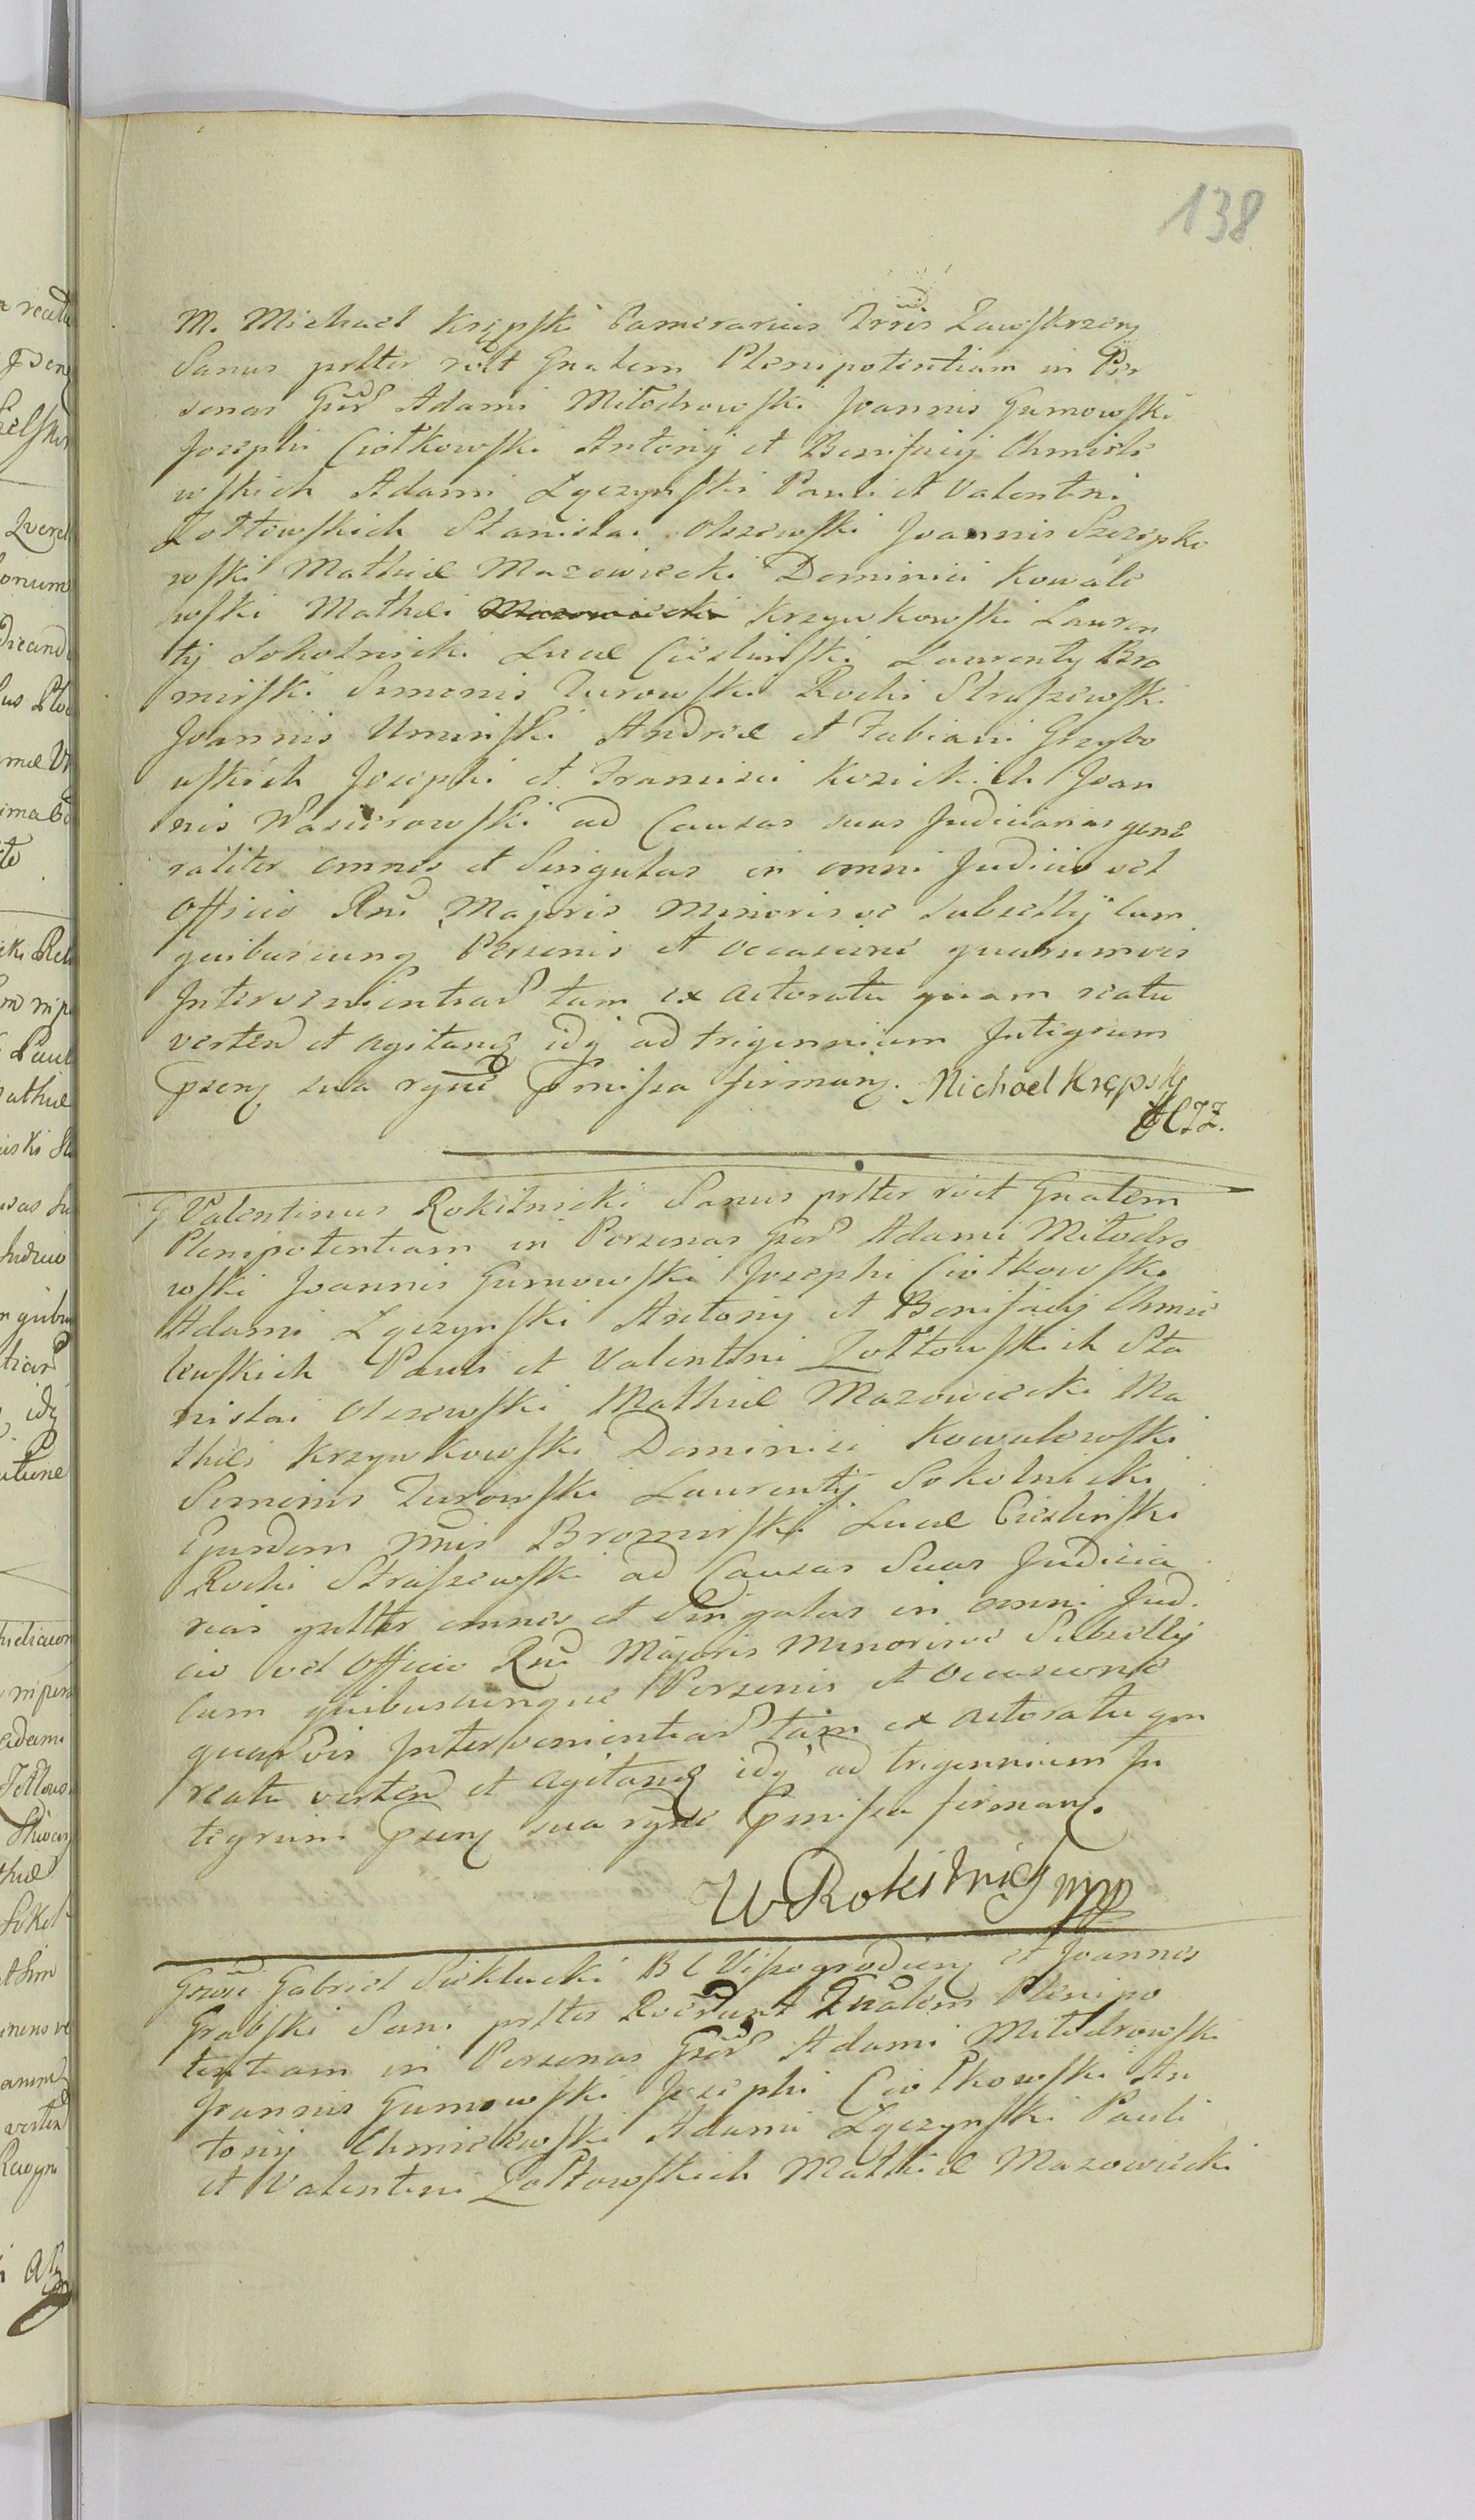 138
M. Michael Krępski Camerarius Trris Zawskrzen
Sanus prltr rvit Gnalem Plenipotentiam in Per
sonas Gsd Adami Miłodrowski Joannis Gumowski
Josephi Ciołkowski Antonij et Bonifacij Chmiele
wskich Adami Łączynski Pauli et Valentini
Zołtowskich Stanislai Olszewski Joannis Szczepko
wski Mathiæ Mazowiecki Dominici Kowale
wski Mathei Mazowiecki Krzywkowski Lauren
tij Sokolnicki Lucæ Cieslinski Laurenty Bro
mirski Simonis Turowski Rochi Straszewski
Joannis Uminski Andreæ et Fabiani Grzybo
wskich Josephi et Francisci Kozickich Joan
nis Wasierowski ad Causas suas Judiciarias gene
raliter omnes et Singulas in omni Judicio vel
Officio Rni Majoris Minorisve Subsellij cum
quibuscunq Personis et occasione quarumvis
Intervenientiar tam ex actoratu quam reatu
verten et agitang idq ad trigennium Integrum
psenq sua rgne pmissa firmanq. Michael Krępsky
CZZ.
G Valentinus Rokitnicki Sanus prltr rvit Gnalem
Plenipotentiam in Personas Gsd Adami Miłodro
wski Joannis Gumowski Josephi Ciołkowski
Adami Łączynski Antonij et Bonifacij Chmie
lewskich Pauli et Valentini Zołtowskich Sta
nislai Olszewski Mathiæ Mazowiecki Ma
thei Krzywkowski Dominici Kowalewski
Simonis Turowski Laurentij Sokolnicki
Ejusdem nnis Bromirski Lucæ Cieslinski
Rochi Straszewski ad Causas Suas Judicia
rias gnltr omnes et Singulas in omni Judi
cio vel Officio Rni Majoris Minorisve Subsellij
cum quibuscunque Personis et occasione
quarvis Intervenientiar tam ex actoratu qm
reatu verten et agitang idq ad trigennium In
tegrum psenq sua rgne pmissa firmanq.
W Rokitnicq mp
Gsosi Gabriel Sioklucki B C Vissogrodien et Joannes
Grabski Sani prltr Rverunt Gnalem Plenipo
tentiam in Personas Gsd Adami Miłodrowski
Joannis Gumowski Josephi Ciołkowski An
tonij Chmielewski Adami Łączynski Pauli
et Valentini Zołtowskich Mathiæ Mazowiecki